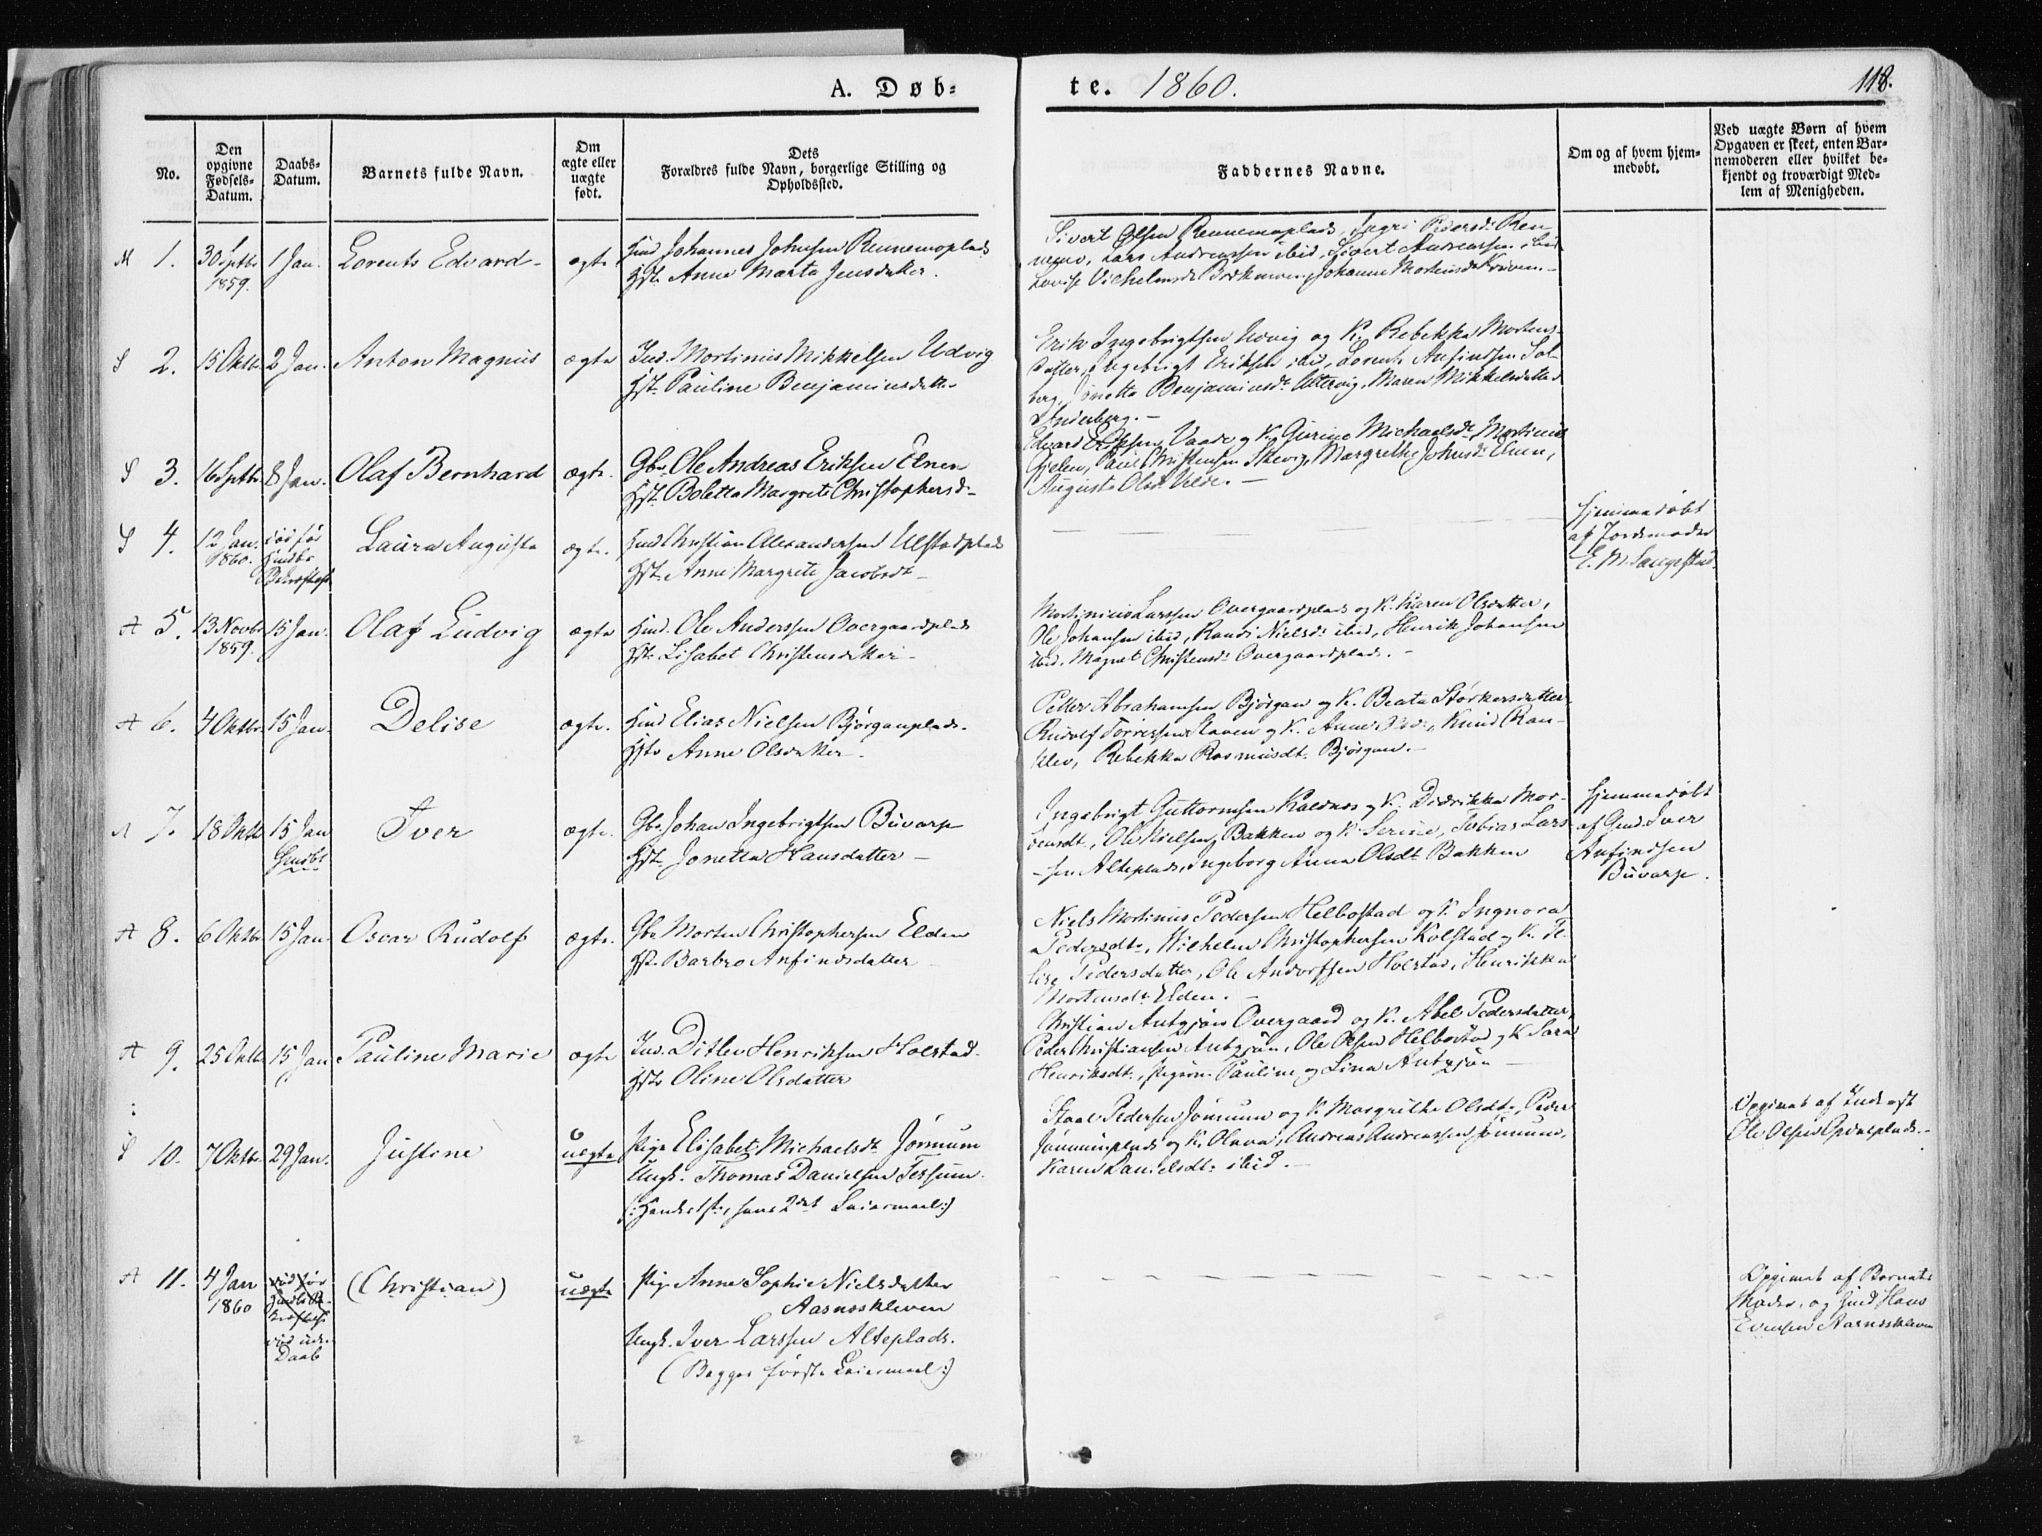 A. Døb-
te. 1860.
118.
No.
Den opgivne Fødsels-Datum.
Daabs-Datum.
Barnets fulde Navn.
Om ægte eller uægte født.
Dets Forældres fulde Navn, borgerlige Stilling og Opholdssted.
Faddernes Navne.
Om og af hvem hjemmedøbt.
Ved uægte Børn af hvem
Opgaven er skeet, enten Bar-
nemoderen eller hvilket be-
kjendt og troværdigt Med-
lem af Menigheden.
M 1. 30 Septbr 1859. 1 Jan. Lorents Edvard - ægte
Huusmd Johannes Johnsen Rennemoplads
Hst. Anne Marta Jensdatter.
Sivert Olsen Rennemoplads, Ingri Pedersdt Ren-
nemo, Lars Andreassen ibid, Sivert Andreassen ibid
Lovise Vilhelmsdt Johanne Mortensdt
S 2. 15 Oktbr 2 Jan. Anton Magnus ægte
Ind. Mortinus Mikkelsen Udvig
Hst. Pauline Benjaminsdatter
Erik Ingebrigtsen Udvig og K. Rebekka Mortens-
datter, Ingebrigt Eriksen ibid, Lorents Anfindsen Sol-
berg, Jonetta Benjaminsdt Utvig, Maren Mikkelsdatter
S 3. 16 Septbr 8 Jan. Olaf Bernhard ægte.
Gbr. Ole Andreas Eriksen Elnen
Hst. Boletta Margrete Christophersdt
Edvard Olsen Vaade og K. Gurine Michaelsdt, Mortinus
Paul Christensen Skevig, Margrethe Johnsdt Elnen,
Augusta Olsdt Velde. -
S 4. 12 Jan. 1860. død før
Laura Augusta ægte.
Hmd Christian Alexandersen Ulstadplads
Hst. Anne Margrete Jacobsdt -
Hjemmedøbt
af Jordemoder
E. M. Langestue
A 5. 13 Novbr 1859. 15 Jan. Olaf Ludvig ægte
Hmd. Ole Anderssen Overgaardplads
Hst. Lisabet Christensdatter -
Mortinius Larssen Overgaardplads og K. Karen Olsdatter,
Ole Johansen ibid, Randi Nielsdt ibid, Henrik Johansen
ibid. Magnet Christensdt Overgaardplads. -
A 6. 4 Oktbr. 15 Jan. Delise ægte.
Hmd Elias Nielsen Bjørganplads.
Hst. Anne Olsdatter -
Petter Abrahamsen Bjørgan og K. Beata Størkersdatter
Rudolf Torressen og K. Anne Knud Ran-
klev, Rebekka Rasmusdt Bjørgan. -
7. 18 Oktbr 15 Jan Iver ægte.
Gbr. Johan Ingebrigtsen Buvarp
Hst. Jonetta Hansdatter -
Ingebrigt Guttormsen Kaldnes og K. Didrikka Mor-
tensdt, Ole Nielsen Bakken og K. Serine, Tobias Lars-
-sen Alteplads, Ingeborg Anna Olsdt Bakken
Hjemmedøbt
af Gmd. Iver
Anfindsen
Buvarp.
A 8. 6 Oktbr 15 Jan. Oscar Rudolf ægte.
Gbr Morten Christophersen Elden
Hst. Barbro Anfindsdatter -
Niels Mortinus Pedersen Helbostad og K. Ingnora
Pedersdt, Wilhelm Christophersen Kolstad og K. El-
lise Pedersdatter, Ole Andorssen Holstad, Henrikka
Mortensdt Elden. -
A 9. 25 Oktbr 15 Jan Pauline Marie ægte
Ind. Ditlev Henriksen Holstad.
Hst. Oline Olsdatter
Christian Autzjøn Overgaard og K. Abel Pedersdatter,
Peder Christiansen Autzjøn, Ole Olsen Helbostad og K. Sara
Henriksdt., Pigerne Pauline og Lina Autzjøn -
S 10. 7 Oktbr. 29 Jan. Justine uægte
Pige Elisabet Michaelsdt Jørmum
Ungk. Thomas Danielsen Tessum.
(: Hendes 1ste, hans 2det Leiermaal :)
Staal Pedersen Jømmum og K. Margrethe Olsdt, Peder
Jømmumplads og K. Olava, Andreas Andreassen Jømmum,
Karen Danielsdt ibid. -
Opgivet af Inderst
Ole Olsen
A 11. 4 Jan 1860
død uden Daab
(Christian) uægte
Pige Anne Sophie Nielsdatter
Aarnesskleven
Ungk. Iver Larssen Alteplads.
(Begges første Leiermaal :)
Opgivet af Barnets
Moder, og Gmd Hans
Evensen Aarnesskleven